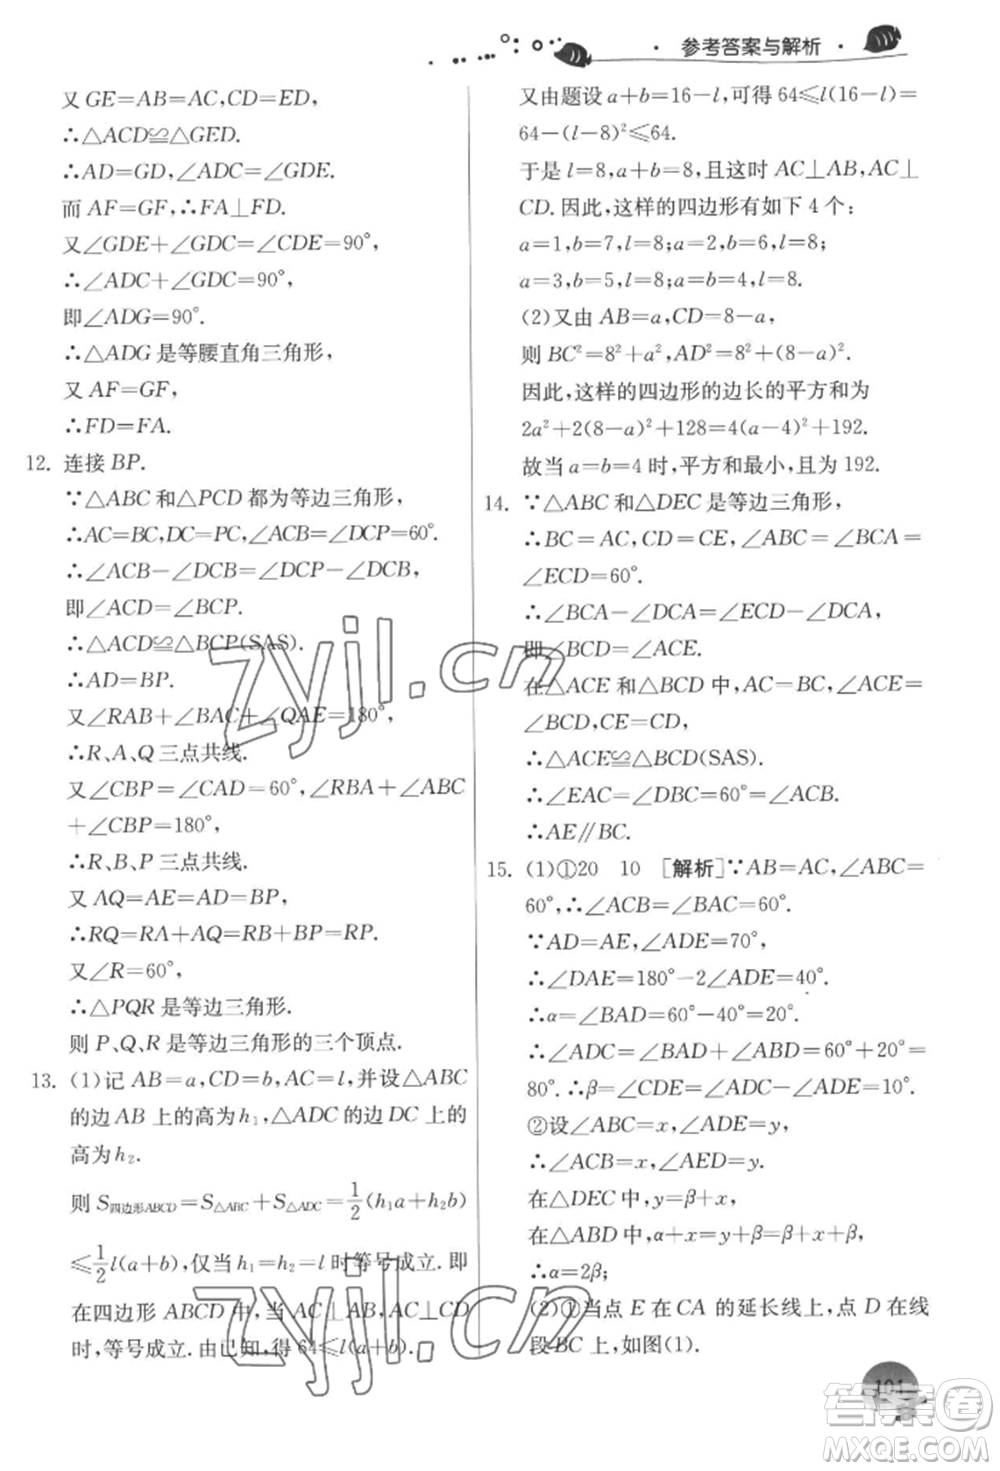 · 参考答案与解析 ·
又 GE=AB=AC,CD=ED,
∴△ACD≌△GED.
∴AD=GD,∠ADC=∠GDE.
而 AF=GF,∴FA⊥FD.
又∠GDE+∠GDC=∠CDE=90°,
∴∠ADC+∠GDC=90°,
即∠ADG=90°.
∴△ADG 是等腰直角三角形,
又 AF=GF,
∴FD=FA.
12. 连接 BP.
∵△ABC 和△PCD 都为等边三角形,
∴AC=BC,DC=PC,∠ACB=∠DCP=60°.
∴∠ACB-∠DCB=∠DCP-∠DCB,
即∠ACD=∠BCP.
∴△ACD≌△BCP(SAS).
∴AD=BP.
又∠RAB+∠BAC+∠QAE=180°,
∴R、A、Q 三点共线.
又∠CBP=∠CAD=60°,∠RBA+∠ABC
+∠CBP=180°,
∴R、B、P 三点共线.
又 AQ=AE=AD=BP,
∴RQ=RA+AQ=RB+BP=RP.
又∠R=60°,
∴△PQR 是等边三角形.
则 P、Q、R 是等边三角形的三个顶点.
13. (1)记 AB=a,CD=b,AC=l,并设△ABC
的边 AB 上的高为 h₁,△ADC 的边 DC 上的
高为 h₂.
则 S四边形ABCD=S△ABC+S△ADC=1/2(h₁a+h₂b)
≤1/2l(a+b),仅当 h₁=h₂=l 时等号成立.即
在四边形 ABCD 中,当 AC⊥AB,AC⊥CD
时,等号成立.由已知,得 64≤l(a+b).
又由题设 a+b=16-l,可得 64≤l(16-l)=
64-(l-8)²≤64.
于是 l=8,a+b=8,且这时 AC⊥AB,AC⊥
CD.因此,这样的四边形有如下 4 个:
a=1,b=7,l=8;a=2,b=6,l=8;
a=3,b=5,l=8;a=b=4,l=8.
(2)又由 AB=a,CD=8-a,
则 BC²=8²+a²,AD²=8²+(8-a)².
因此,这样的四边形的边长的平方和为
2a²+2(8-a)²+128=4(a-4)²+192.
故当 a=b=4 时,平方和最小,且为 192.
14. ∵△ABC 和△DEC 是等边三角形,
∴BC=AC,CD=CE,∠ABC=∠BCA=
∠ECD=60°.
∴∠BCA-∠DCA=∠ECD-∠DCA,
即∠BCD=∠ACE.
在△ACE 和△BCD 中,AC=BC,∠ACE=
∠BCD,CE=CD,
∴△ACE≌△BCD(SAS).
∴∠EAC=∠DBC=60°=∠ACB.
∴AE∥BC.
15. (1)①20 10 [解析]∵AB=AC,∠ABC=
60°,∴∠ACB=∠BAC=60°.
∵AD=AE,∠ADE=70°,
∴∠DAE=180°-2∠ADE=40°.
∴α=∠BAD=60°-40°=20°.
∴∠ADC=∠BAD+∠ABD=60°+20°=
80°.∴β=∠CDE=∠ADC-∠ADE=10°.
②设∠ABC=x,∠ADE=y,
∴∠ACB=x,∠AED=y.
在△DEC 中,y=β+x,
在△ABD 中,α+x=y+β=β+x+β,
∴α=2β;
(2)①当点 E 在 CA 的延长线上,点 D 在线
段 BC 上,如图(1).
101
zyjl.cn
zyjl.cn
答案卷
MXQE.COM